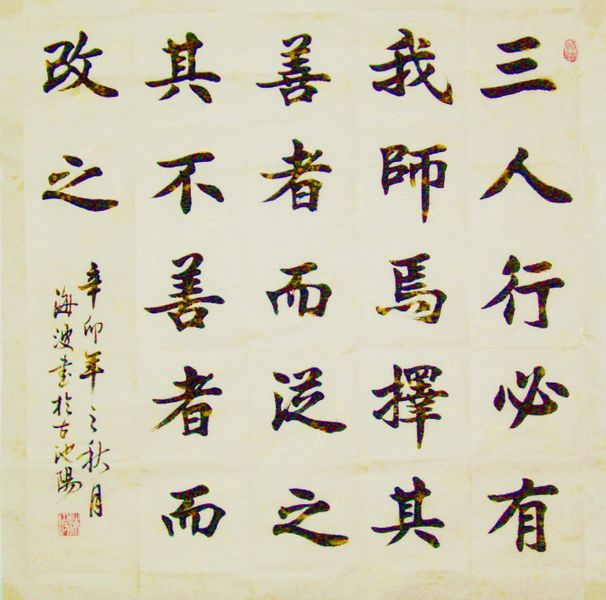 三人行必有
我師焉擇其
善者而從之
其不善者而
改之
辛卯年之秋月
海波書於古池陽